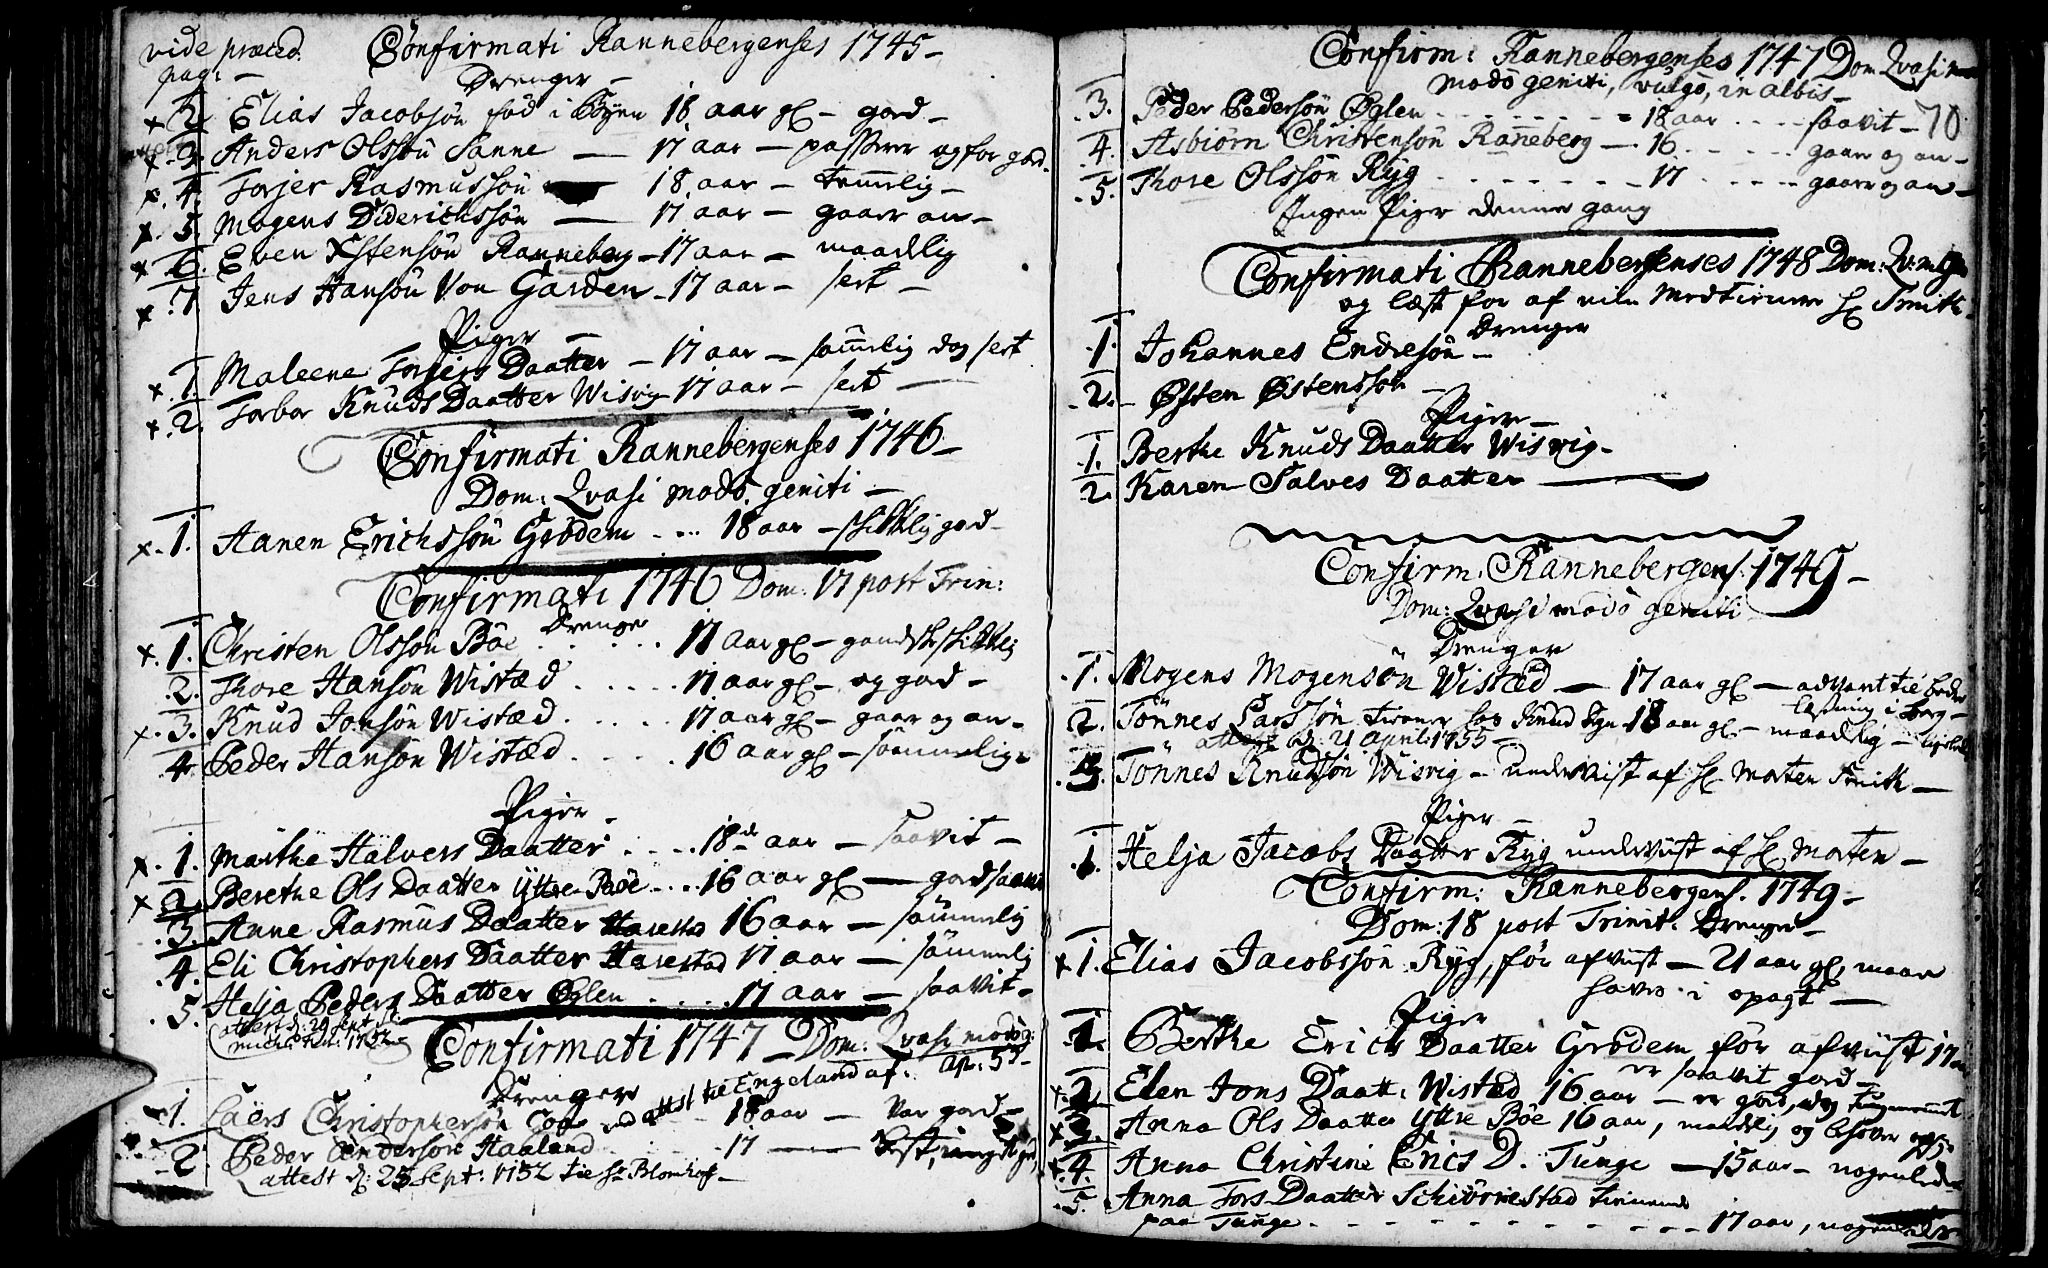 vide præced. pag: Confirmati Rannebergenses 1745
Drenger
2. Elias Jacobsøn fød i Byen 18 aar gl - god
3. Anders Olssøn Sanne 17 aar - passerer og for god
4. Torjer Rasmussøn 18 aar - temmelig
5. Mogens Diderichssøn 17 aar - gaaer an
6. Even Østensøn Ranneberg 17 aar - maadlig
7. Jens Hansøn Von Garden 17 aar - slet
Piger
1. Maleene Torjers Daatter 17 aar - dog slet
2. Torbor Knuds Daatter Wisvig 17 aar - slet
Confirmati Rannebergenses 1746
Dom: Qvasi modo geniti
1. Aanen Erichssøn Grødem 18 aar - skikkelig god
Confirmati 1746 Dom: 17 post Trin:
Drenger
1. Christen Olssøn Bøe 17 aar gl - gandske skikkelig
2. Thore Hansøn Wistæd 17 aar gl - og god
3. Knud Jonsøn Wistæd 17 aar gl - gaar og an
4. Peder Hansøn Wistæd 16 aar gl - sømmelig
Piger
1. Marthe Halvers Daatter 18 de aar - saavit
2. Berethe Ols Daatter Yttre Bøe 16 aar gl - god
3. Anne Rasmus Daatter Harestad 16 aar - sømmelig
4. Eli Christophers Daatter Harestad 17 aar - sømmelig
5. Helja Peders Daatter Øglen 17 aar - saavit
attest d: 29 Sept
1752
Confirmati 1747 Dom: Qvasi modo g:
Drenger attest til Engeland af. ap: 55
1. Laers Christophersøn 18 aar - var god
2. Peder Andersøn Haaland 17
attest d: 25 Sept: 1752 til Sr Blomhof
Confirm: Rannebergenses 1747 Dom Qvasi
modo geniti, vulgo, in albis
70
3. Peder Pedersøn Øglen 18 aar saavit
4. Asbiørn Christensøn Ranneberg 16 gaar og an
5. Thore Olssøn Ryg 17 gaar og an
Ingen Piger denne gang
Confirmati Rannebergenses 1748 Dom: Qv: m: g
og læst for af Sl Smith
Drenger
1. Johannes Endresøn
2. Østen Østenssøn
Piger
1. Berthe Knuds Daatter Wisvig
2. Karen Salves Daatter
Confirm: Rannebergens: 1749
Dom: Qvasi modo geniti
Drenger
1. Mogens Mogensøn Wistæd 17 aar gl - advart til bedre
læsning i bog
2. Tønnes Larssøn tiener hos Knud 18 aar gl - maadlig
attest d: 21 April 1755
3. Tønnes Knudsøn Wisvig - underviist af Sl Morten Smith
Piger
1. Helja Jacobs Daatter Ryg underviist af Sl Morten
Confirm: Rannebergens. 1749
Dom: 18 post Trinit. Drenger
1. Elias Jacobssøn Ryg, før afviist - 21 aar gl maae
haves i opagt
Piger
1. Berthe Erics Daatter Grødem før afviist 17 aar
er saavit god
2. Elen Jons Daatt: Wistæd 16 aar - er god, dog
3. Anna Ols Daatter Yttre Bøe 16 aar, maadlig og
4. Anna Christine Erics D. Tunge 15 aar - nogenledes
5. Anna Tors Daatter Schiørrestad tienende
paa Tunge 17 aar, nogenledes